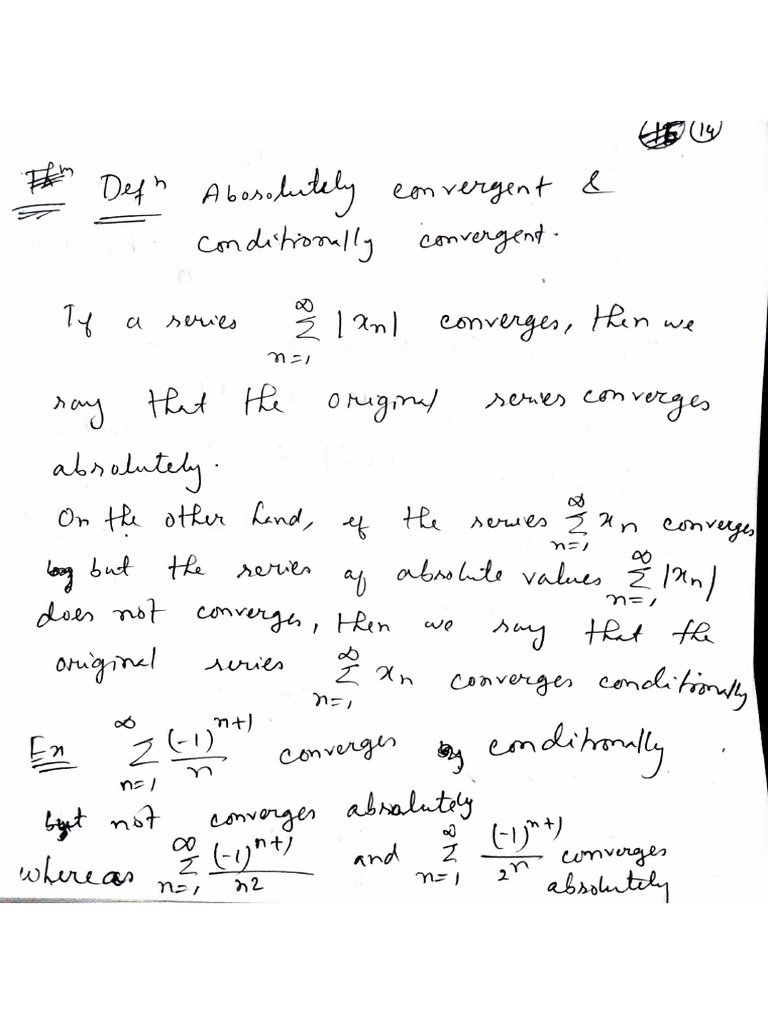 (14)
Defⁿ Abosolutely convergent &
conditionally convergent.
If a series ∞∑n=1 |xn| converges, then we
say that the original series converges
absolutely.
On the other hand, if the series ∞∑n=1 xn converges
but the series of absolute values ∞∑n=1 |xn|
does not converges, then we say that the
original series ∞∑n=1 xn converges conditionally
Ex ∞∑n=1 (-1)^n+1/n converges conditionally
but not converges absolutely
whereas ∞∑n=1 (-1)^n+1/n2 and ∞∑n=1 (-1)^n+1/2^n converges
absolutely